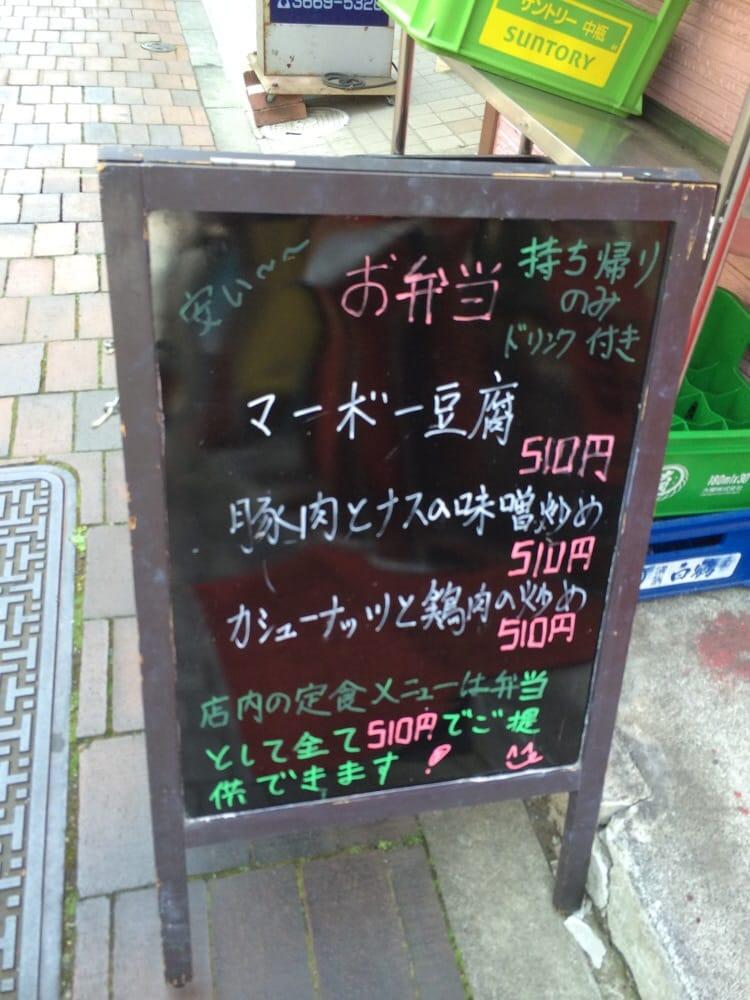 3669-5328
サントリー 中瓶
SUNTORY
安い〜〜
お弁当
持ち帰り
のみ
ドリンク付き
マーボー豆腐
510円
豚肉とナスの味噌炒め
510円
カシューナッツと鶏肉の炒め
510円
店内の定食メニューは弁当
として全て510円でご提
供できます!
180ml×30
白鶴